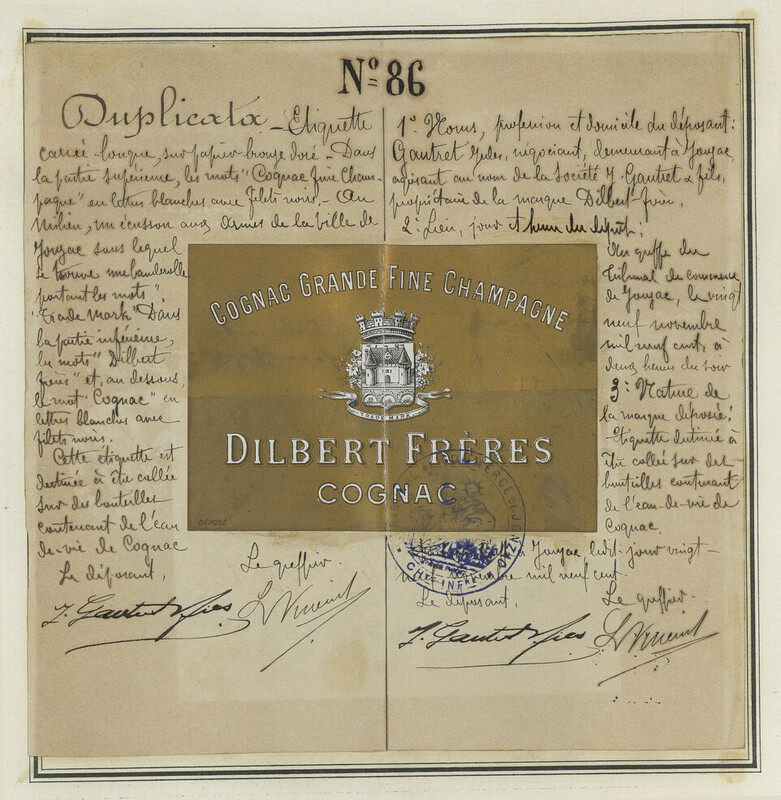 Nº 86
Duplicata - Etiquette
carrée longue, sur papier bronze doré - Dans
la partie supérieure, les mots "Cognac fine Cham-
pagne" en lettres blanches avec filets noirs. - Au
milieu, un écusson aux armes de la ville de
Jonzac sous lequel
se trouve une banderolle
portant les mots
"Trade Mark" Dans
la partie inférieure,
les mots "Dilbert
frères" et, au dessous,
le mot "Cognac" en
lettres blanches avec
filets noirs.
Cette étiquette est
destinée à être collée
sur des bouteilles
contenant de l'eau
de-vie de Cognac
Le déposant,
Le greffier.
J. Gautret & fils
L Vincent
1º Noms, profession et domicile du déposant:
Gautret Jules, négociant, demeurant à Jonzac,
agissant au nom de la Société J. Gautret & fils,
propriétaire de la marque Dilbert frères.
2º Lieu, jour et heure du dépôt:
Au greffe du
Tribunal de commerce
de Jonzac, le vingt
neuf novembre
mil neuf cent, à
deux heures du soir
3º Nature de
la marque déposée:
Etiquette destinée à
être collée sur des
bouteilles contenant
de l'eau-de-vie de
Cognac.
Jonzac ledit jour vingt-
neuf novembre mil neuf cent.
Le déposant,
Le greffier.
J. Gautret & fils
L Vincent
COGNAC GRANDE FINE CHAMPAGNE
TRADE MARK
DILBERT FRÈRES
COGNAC
DÉPOSÉ
DE JONZAC